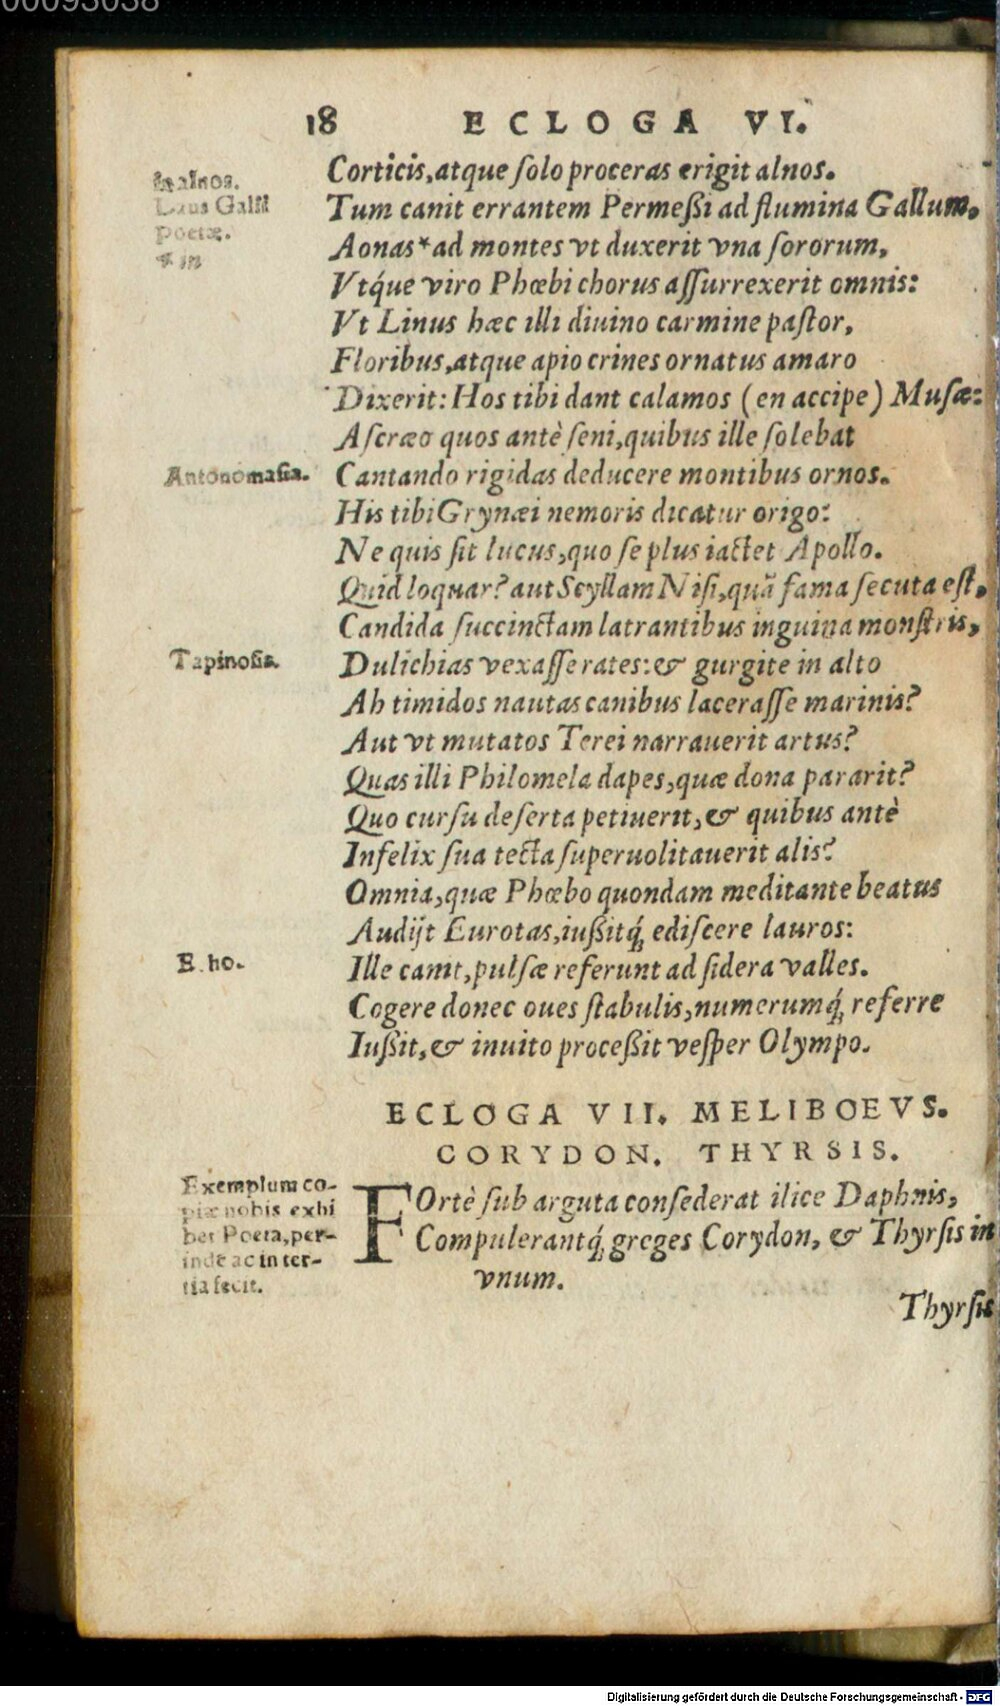 00093038
18 ECLOGA VI.
Corticis, atque ſolo proceras erigit alnos.
in alnos.
Laus Galli
poetæ.
* in
Tum canit errantem Permeßi ad flumina Gallum.
Aonas* ad montes vt duxerit vna ſororum,
Vtq́ue viro Phœbi chorus aſſurrexerit omnis:
Vt Linus hæc illi diuino carmine paſtor,
Floribus, atque apio crines ornatus amaro
Dixerit: Hos tibi dant calamos (en accipe) Muſæ:
Aſcræo quos antè ſeni, quibus ille ſolebat
Antonomaſia.
Cantando rigidas deducere montibus ornos.
His tibi Grynæi nemoris dicatur origo:
Ne quis ſit lucus, quo ſe plus iactet Apollo.
Quid loquar? aut Scyllam Niſi, quã fama ſecuta eſt,
Candida ſuccinctam latrantibus inguina monſtris,
Tapinoſis.
Dulichias vexaſſe rates: & gurgite in alto
Ah timidos nautas canibus laceraſſe marinis?
Aut vt mutatos Terei narrauerit artus?
Quas illi Philomela dapes, quæ dona pararit?
Quo curſu deſerta petiuerit, & quibus antè
Infelix ſua tecta ſuperuolitauerit alis?
Omnia, quæ Phœbo quondam meditante beatus
Audijt Eurotas, iußitq́; ediſcere lauros:
E ho.
Ille canit, pulſæ referunt ad ſidera valles.
Cogere donec oues ſtabulis, numerumq́; referre
Iußit, & inuito proceßit veſper Olympo.
ECLOGA VII. MELIBOEVS.
CORYDON. THYRSIS.
Exemplum co-
piæ nobis exhi
bet Poeta, per-
inde ac in ter-
tia fecit.
FOrtè ſub arguta conſederat ilice Daphnis,
Compulerantq́; greges Corydon, & Thyrſis in
vnum.
Thyrſis
Digitalisierung gefördert durch die Deutsche Forschungsgemeinschaft - DFG